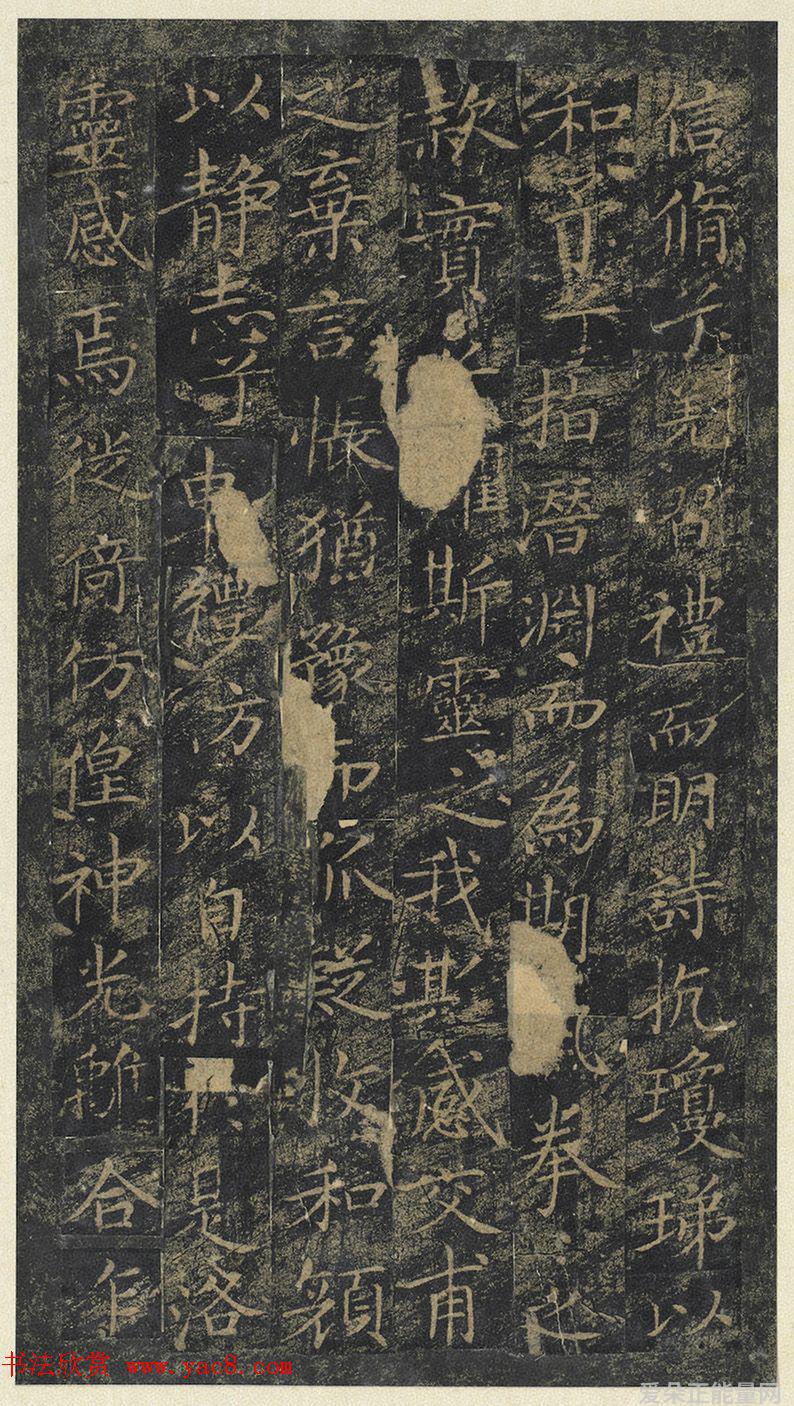 信脩兮羌習禮而明詩抗瓊珶以
和予兮指潛淵而為期拳〻之
款實斯靈之我欺感交甫
之棄言悵猶豫而狐疑收和顏
以静志兮申禮防以自持於是洛
靈感焉徙倚仿偟神光離合乍
书法欣赏 www.yac8.com
爱朵正能量网